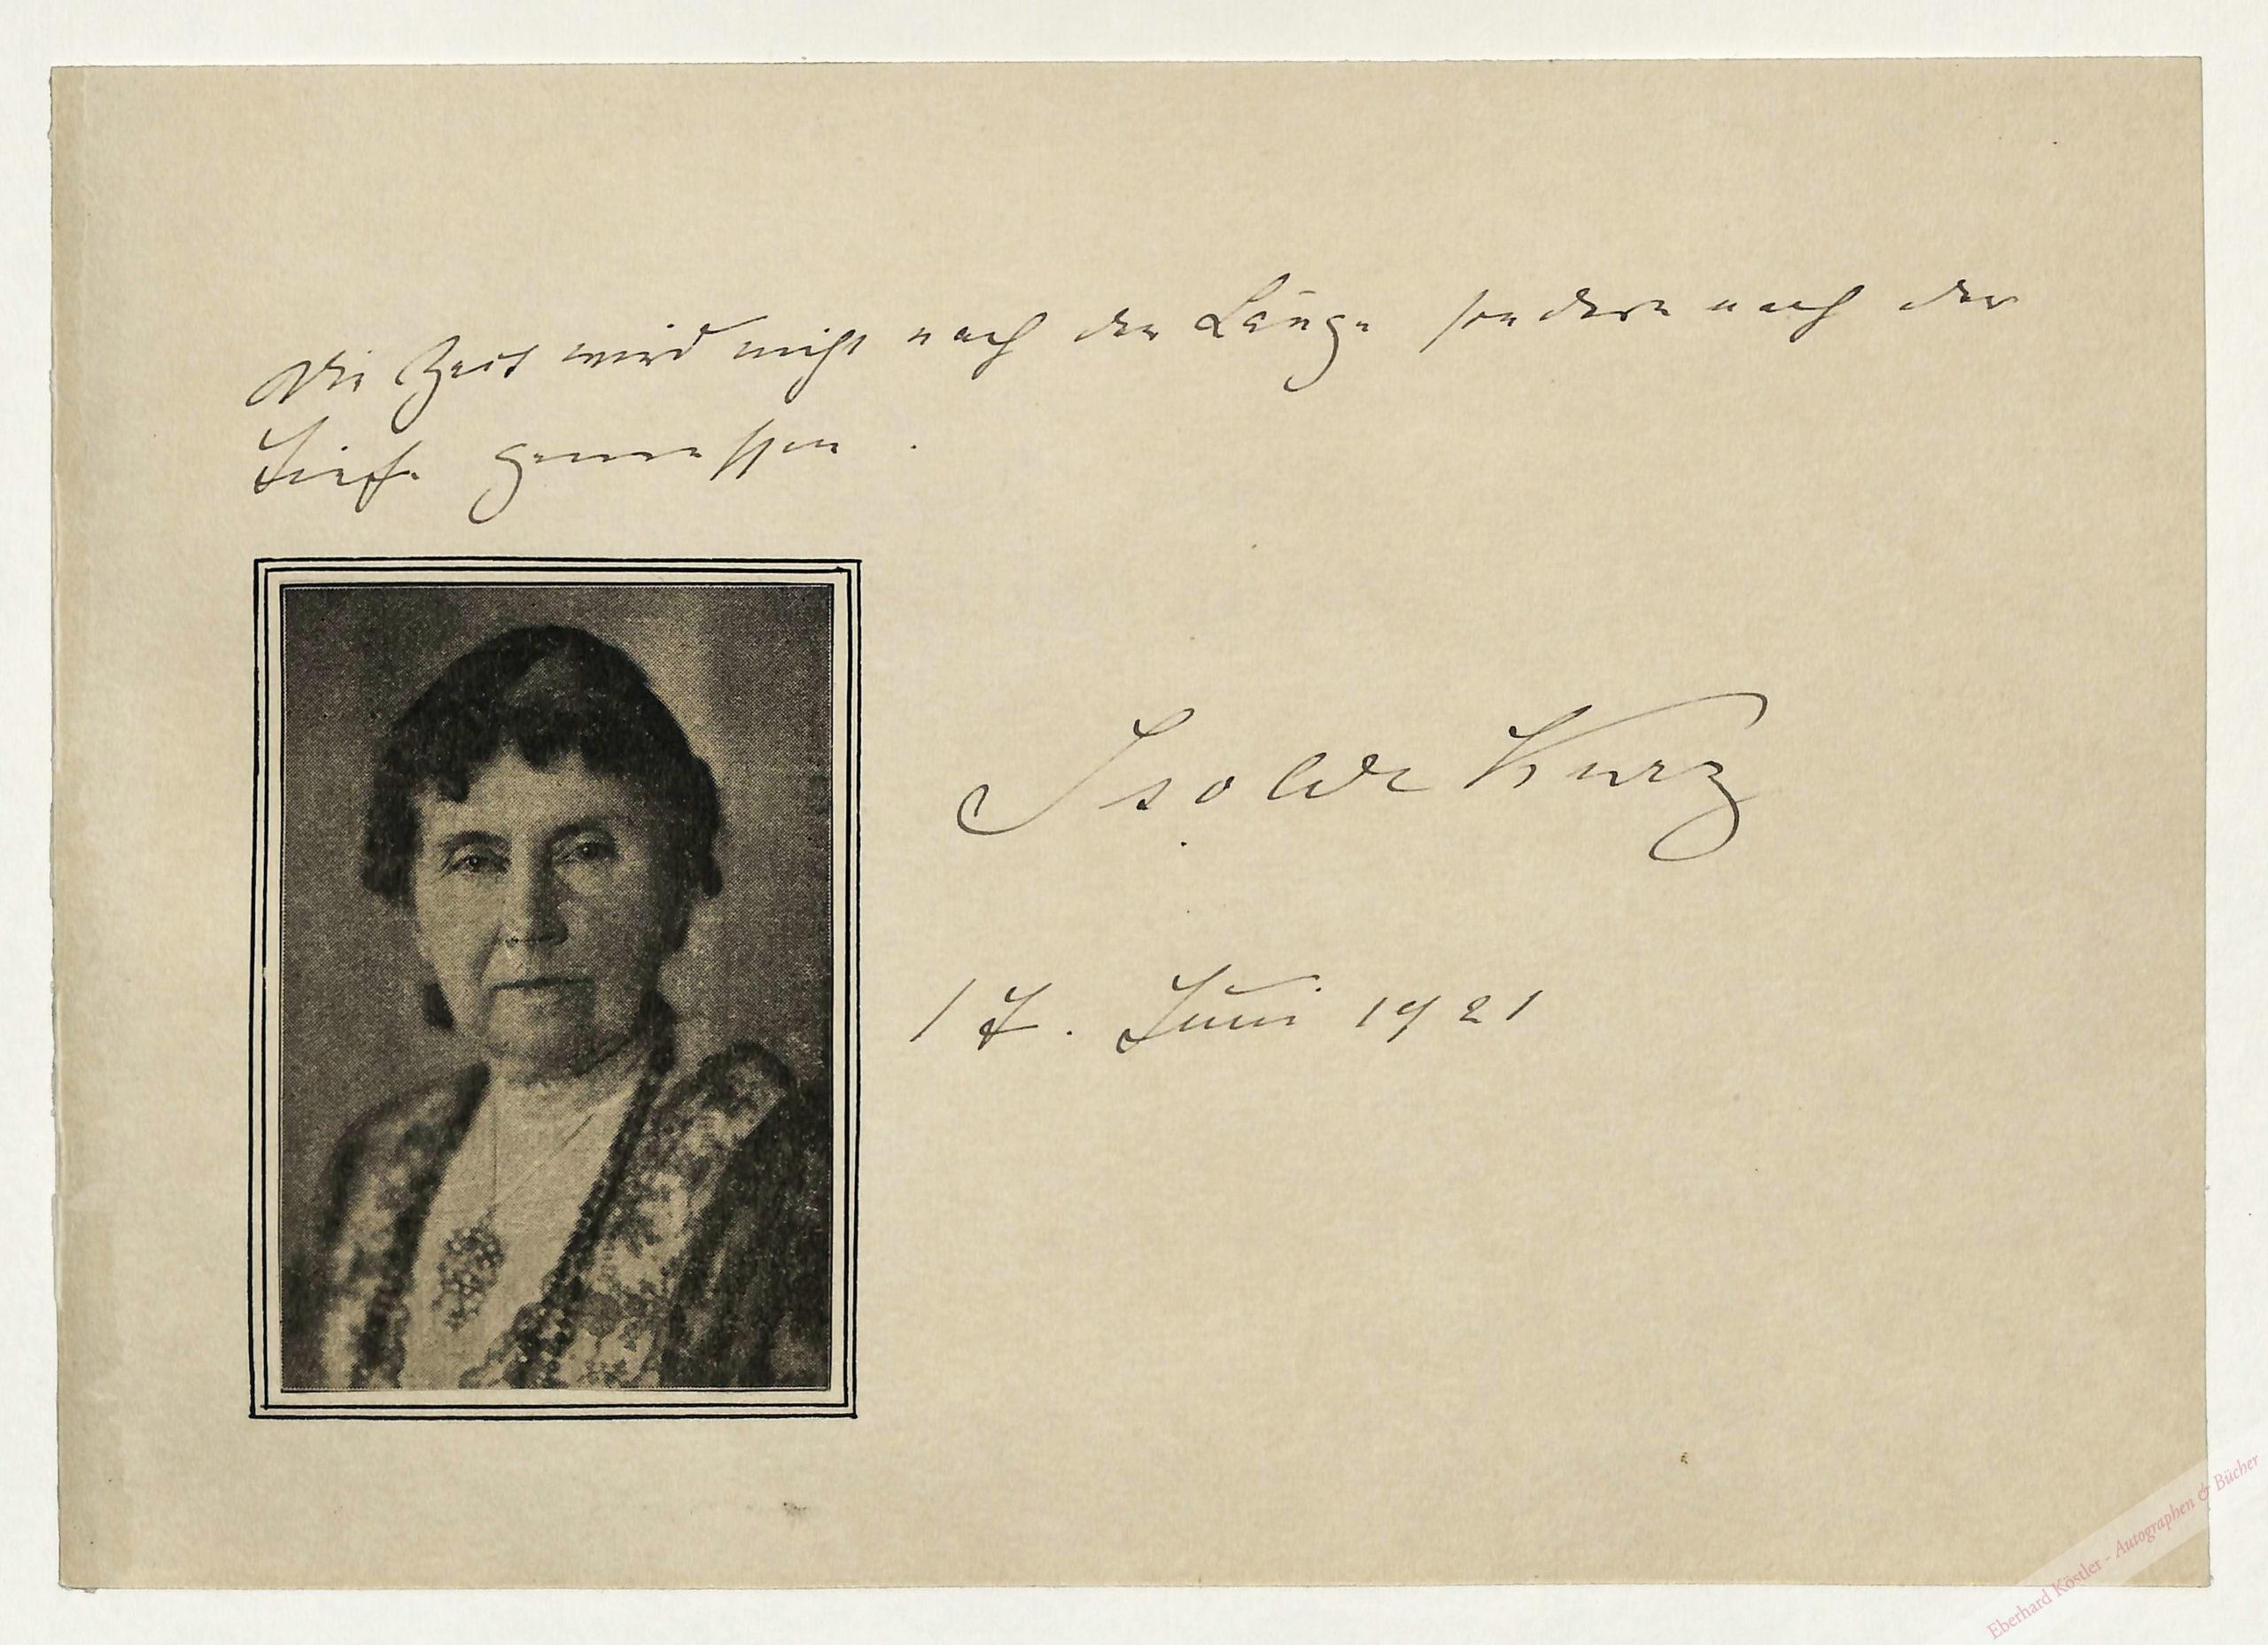 Die Zeit wird nicht nach der Länge sondern nach der
Tiefe gemessen.
Isolde Kurz
17. Juni 1921
Eberhard Köstler - Autographen & Bücher